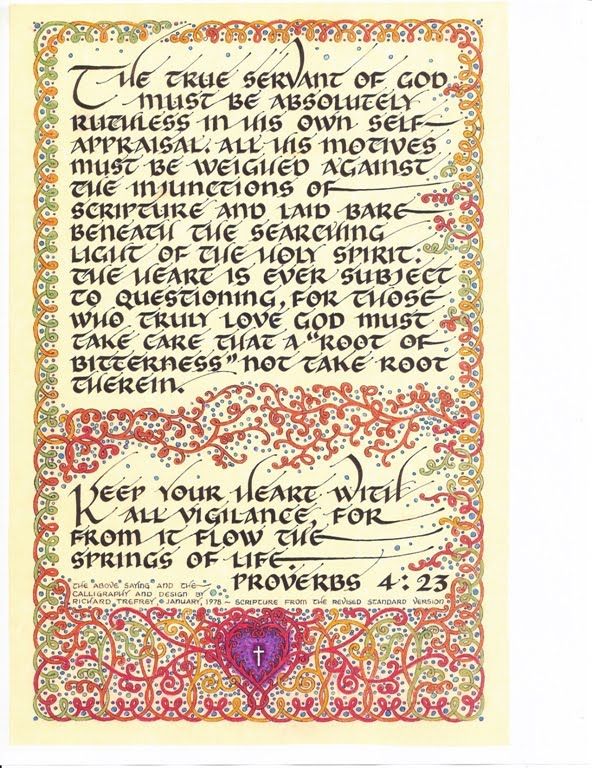 THE TRUE SERVANT OF GOD
MUST BE ABSOLUTELY
RUTHLESS IN HIS OWN SELF-
APPRAISAL. ALL HIS MOTIVES
MUST BE WEIGHED AGAINST
THE INJUNCTIONS OF
SCRIPTURE AND LAID BARE
BENEATH THE SEARCHING
LIGHT OF THE HOLY SPIRIT.
THE HEART IS EVER SUBJECT
TO QUESTIONING, FOR THOSE
WHO TRULY LOVE GOD MUST
TAKE CARE THAT A "ROOT OF
BITTERNESS" NOT TAKE ROOT
THEREIN.
KEEP YOUR HEART WITH
ALL VIGILANCE, FOR
FROM IT FLOW THE
SPRINGS OF LIFE.
PROVERBS 4:23
THE ABOVE SAYING AND THE
CALLIGRAPHY AND DESIGN BY
RICHARD TREFREY, © JANUARY, 1978 ~ SCRIPTURE FROM THE REVISED STANDARD VERSION